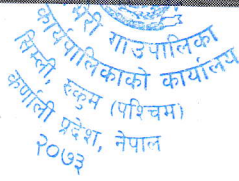 भेरी गाउँपालिका
कार्यपालिकाको कार्यालय
सिम्ली, रुकुम (पश्चिम)
कर्णाली प्रदेश, नेपाल
२०७३